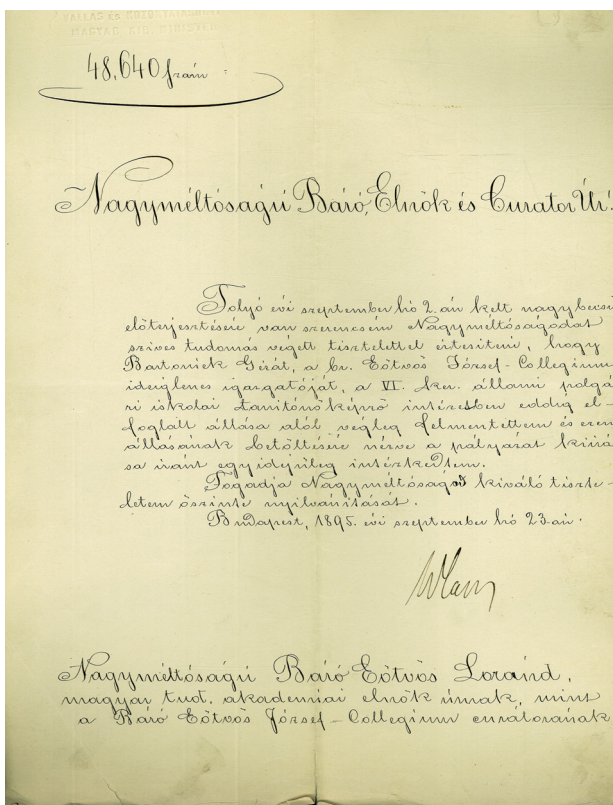 VALLÁS ÉS KÖZOKTATÁSÜGYI
MAGYAR KIR. MINISZTER
48.640 szám
Nagyméltóságú Báró, Elnök és Curator Úr!
Folyó évi szeptember hó 2.án kelt nagybecsű
előterjesztésére van szerencsém Nagyméltóságodat
szives tudomás végett tisztelettel értesiteni, hogy
Bartoniek Gézát, a br. Eötvös József-Collegium
ideiglenes igazgatóját, a VI. ker. állami polgá
ri iskolai tanitónőképző intézetben eddig el-
foglalt állása alól végleg felmentettem és ezen
állásának betöltésére nézve a pályázat kiirá
sa iránt egyidejüleg intézkedtem.
Fogadja Nagyméltóságod kiváló tiszte-
letem őszinte nyilvánitását.
Budapest, 1895. évi szeptember hó 23.án.
Nagyméltóságú Báró Eötvös Loránd,
magyar tud. akadémiai elnök úrnak, mint
a Báró Eötvös József-Collegium curátorának